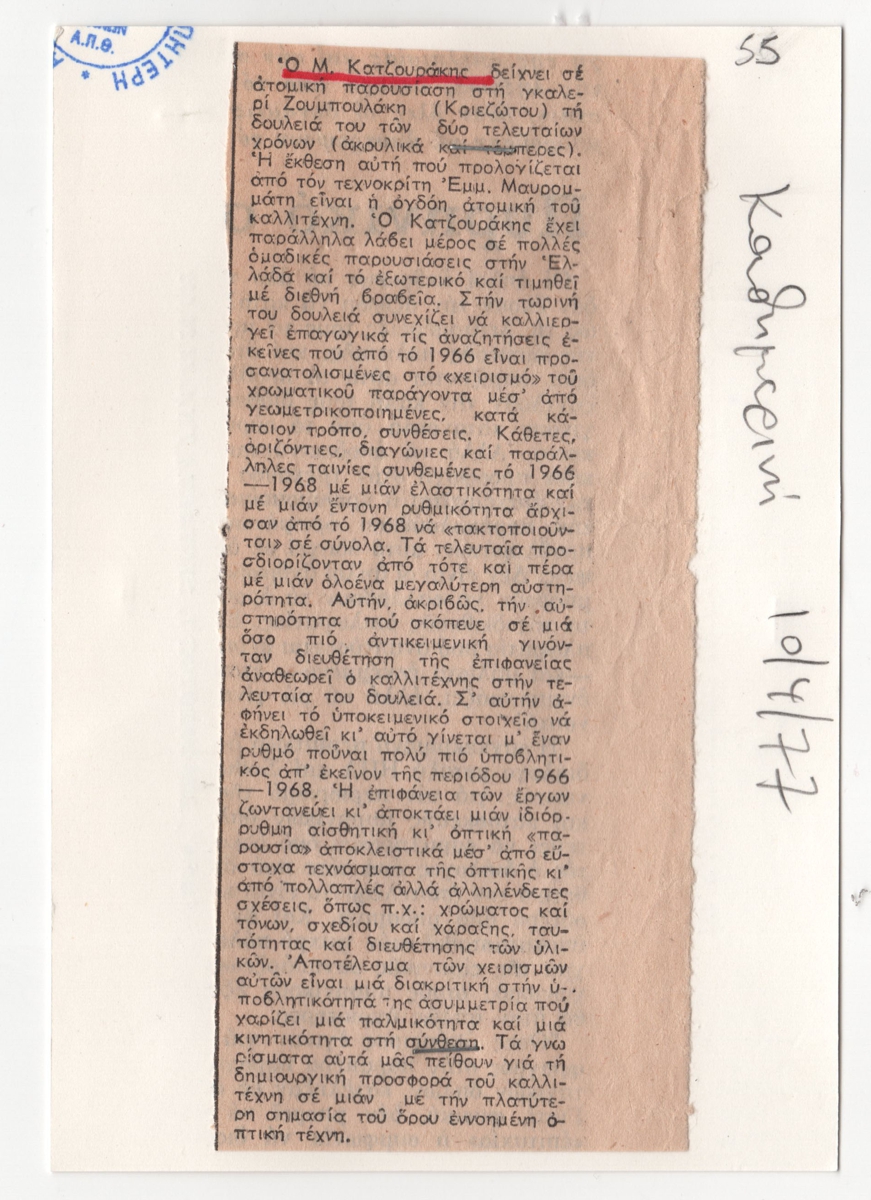 ΠΗΤΕΡΗ *
Α.Π.Θ.
55
Καθημερινή 10/4/77
Ὁ Μ. Κατζουράκης δείχνει σέ
ἀτομική παρουσίαση στή γκαλε-
ρί Ζουμπουλάκη (Κριεζώτου) τή
δουλειά του τῶν δύο τελευταίων
χρόνων (ἀκρυλικά καί τέμπερες).
Ἡ ἔκθεση αὐτή πού προλογίζεται
ἀπό τόν τεχνοκρίτη Ἐμμ. Μαυρομ-
μάτη εἶναι ἡ ὀγδόη ἀτομική τοῦ
καλλιτέχνη. Ὁ Κατζουράκης ἔχει
παράλληλα λάβει μέρος σέ πολλές
ὁμαδικές παρουσιάσεις στήν Ἑλ-
λάδα καί τό ἐξωτερικό καί τιμηθεῖ
μέ διεθνῆ βραβεῖα. Στήν τωρινή
του δουλειά συνεχίζει νά καλλιερ-
γεῖ ἐπαγωγικά τίς ἀναζητήσεις ἐ-
κεῖνες πού ἀπό τό 1966 εἶναι προ-
σανατολισμένες στό «χειρισμό» τοῦ
χρωματικοῦ παράγοντα μέσ' ἀπό
γεωμετρικοποιημένες, κατά κά-
ποιον τρόπο, συνθέσεις. Κάθετες,
ὁριζόντιες, διαγώνιες καί παράλ-
ληλες ταινίες συνθεμένες τό 1966
—1968 μέ μιάν ἐλαστικότητα καί
μέ μιάν ἔντονη ρυθμικότητα ἄρχι-
σαν ἀπό τό 1968 νά «τακτοποιοῦν-
ται» σέ σύνολα. Τά τελευταῖα προ-
σδιορίζονταν ἀπό τότε καί πέρα
μέ μιάν ὁλοένα μεγαλύτερη αὐστη-
ρότητα. Αὐτήν, ἀκριβῶς, τήν αὐ-
στηρότητα πού σκόπευε σέ μιά
ὅσο πιό ἀντικειμενική γινόν-
ταν διευθέτηση τῆς ἐπιφανείας
ἀναθεωρεῖ ὁ καλλιτέχνης στήν τε-
λευταία του δουλειά. Σ' αὐτήν ἀ-
φήνει τό ὑποκειμενικό στοιχεῖο νά
ἐκδηλωθεῖ κι' αὐτό γίνεται μ' ἕναν
ρυθμό ποὖναι πολύ πιό ὑποβλητι-
κός ἀπ' ἐκεῖνον τῆς περιόδου 1966
—1968. Ἡ ἐπιφάνεια τῶν ἔργων
ζωντανεύει κι' ἀποκτάει μιάν ἰδιόρ-
ρυθμη αἰσθητική κι' ὀπτική «πα-
ρουσία» ἀποκλειστικά μέσ' ἀπό εὔ-
στοχα τεχνάσματα τῆς ὀπτικῆς κι'
ἀπό πολλαπλές ἀλλά ἀλληλένδετες
σχέσεις, ὅπως π.χ.: χρώματος καί
τόνων, σχεδίου καί χάραξης, ταυ-
τότητας καί διευθέτησης τῶν ὑλι-
κῶν. Ἀποτέλεσμα τῶν χειρισμῶν
αὐτῶν εἶναι μιά διακριτική στήν ὑ-
ποβλητικότητά της ἀσυμμετρία πού
χαρίζει μιά παλμικότητα καί μιά
κινητικότητα στή σύνθεση. Τά γνω
ρίσματα αὐτά μᾶς πείθουν γιά τή
δημιουργική προσφορά τοῦ καλλι-
τέχνη σέ μιάν μέ τήν πλατύτε-
ρη σημασία τοῦ ὅρου ἐννοημένη ὀ-
πτική τέχνη.